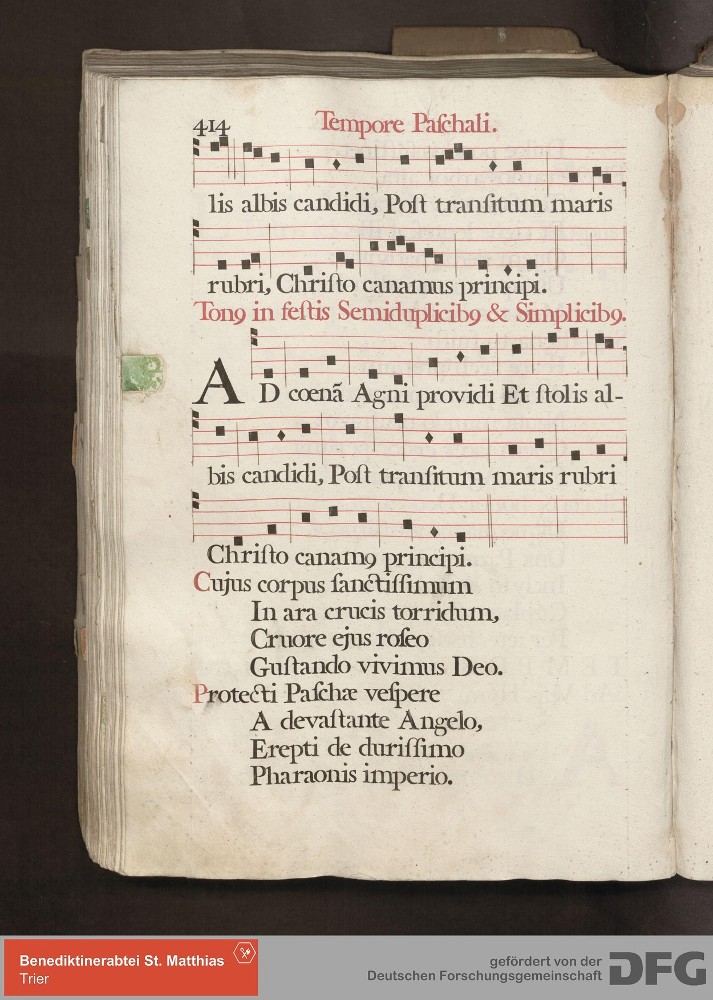 414 Tempore Paſchali.
lis albis candidi, Poſt tranſitum maris
rubri, Chriſto canamus principi.
Tonꝯ in feſtis Semiduplicibꝯ & Simplicibꝯ.
AD cœnã Agni providi Et ſtolis al-
bis candidi, Poſt tranſitum maris rubri
Chriſto canamꝯ principi.
Cujus corpus ſanctiſſimum
In ara crucis torridum,
Cruore ejus roſeo
Guſtando vivimus Deo.
Protecti Paſchæ veſpere
A devaſtante Angelo,
Erepti de duriſſimo
Pharaonis imperio.
Benediktinerabtei St. Matthias
Trier
gefördert von der
Deutschen Forschungsgemeinschaft
DFG